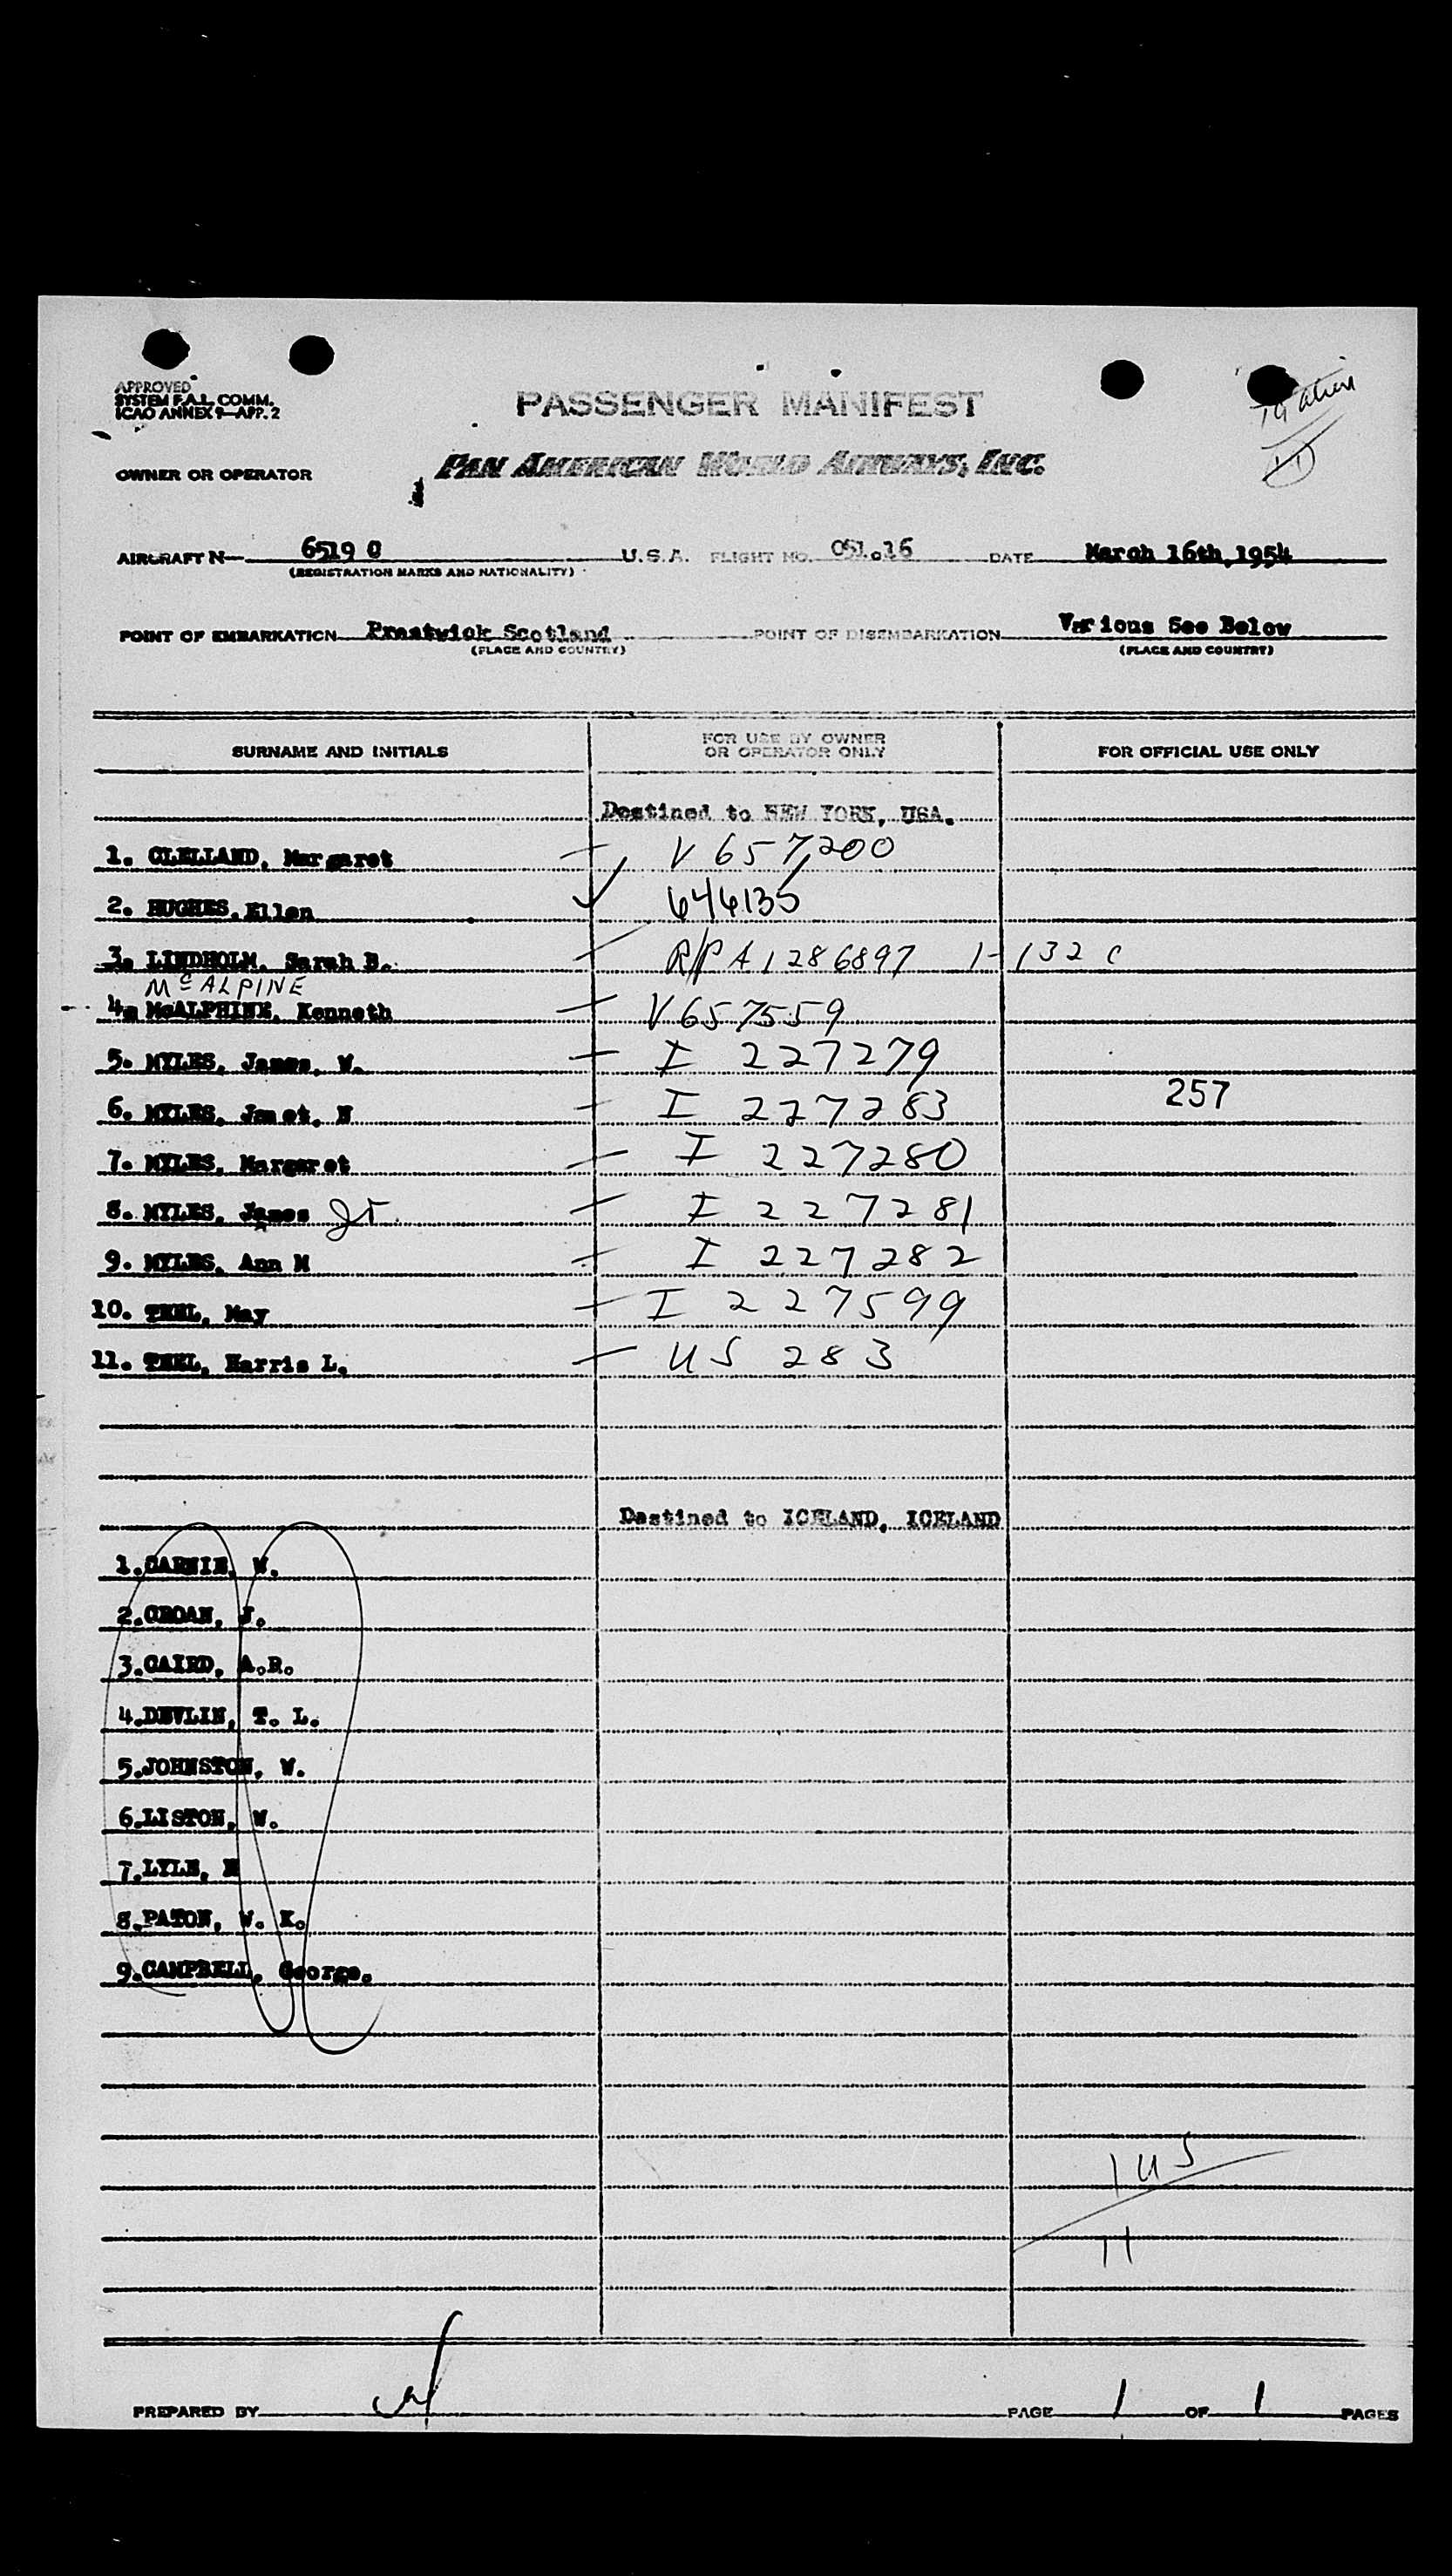 APPROVED
SYSTEM F.A.L. COMM.
ICAO ANNEX 9—APP. 2
PASSENGER MANIFEST
OWNER OR OPERATOR PAN AMERICAN WORLD AIRWAYS, INC.
AIRCRAFT N— 6519 C U.S.A. FLIGHT NO. 051.16 DATE March 16th,1954
(REGISTRATION MARKS AND NATIONALITY)
POINT OF EMBARKATION Prestwick Scotland POINT OF DISEMBARKATION Various See Below
(PLACE AND COUNTRY) (PLACE AND COUNTRY)
SURNAME AND INITIALS FOR USE BY OWNER OR OPERATOR ONLY FOR OFFICIAL USE ONLY
Destined to NEW YORK, USA.
1. CLELLAND, Margaret V 657200
2. HUGHES, Ellen 646135
3. LINDHOLM, Sarah B. R/P A1286897 1-132 c
McALPINE
4. McALPHINE, Kenneth V 657559
5. MYLES, James, W. I 227279
6. MYLES, Janet, N I 227283 257
7. MYLES, Margaret I 227280
8. MYLES, James Jr. I 227281
9. MYLES, Ann M I 227282
10. TEEL, May I 227599
11. TEEL, Harris L. US 283
Destined to ICELAND, ICELAND
1.CARNIE, W.
2.CROAN, J.
3.CAIRD, A.R.
4.DEVLIN, T. L.
5.JOHNSTON, W.
6.LISTON, W.
7.LYLE, H
8.PATON, W. K.
9.CAMPBELL, George.
1 US
11
PREPARED BY PAGE 1 OF 1 PAGES